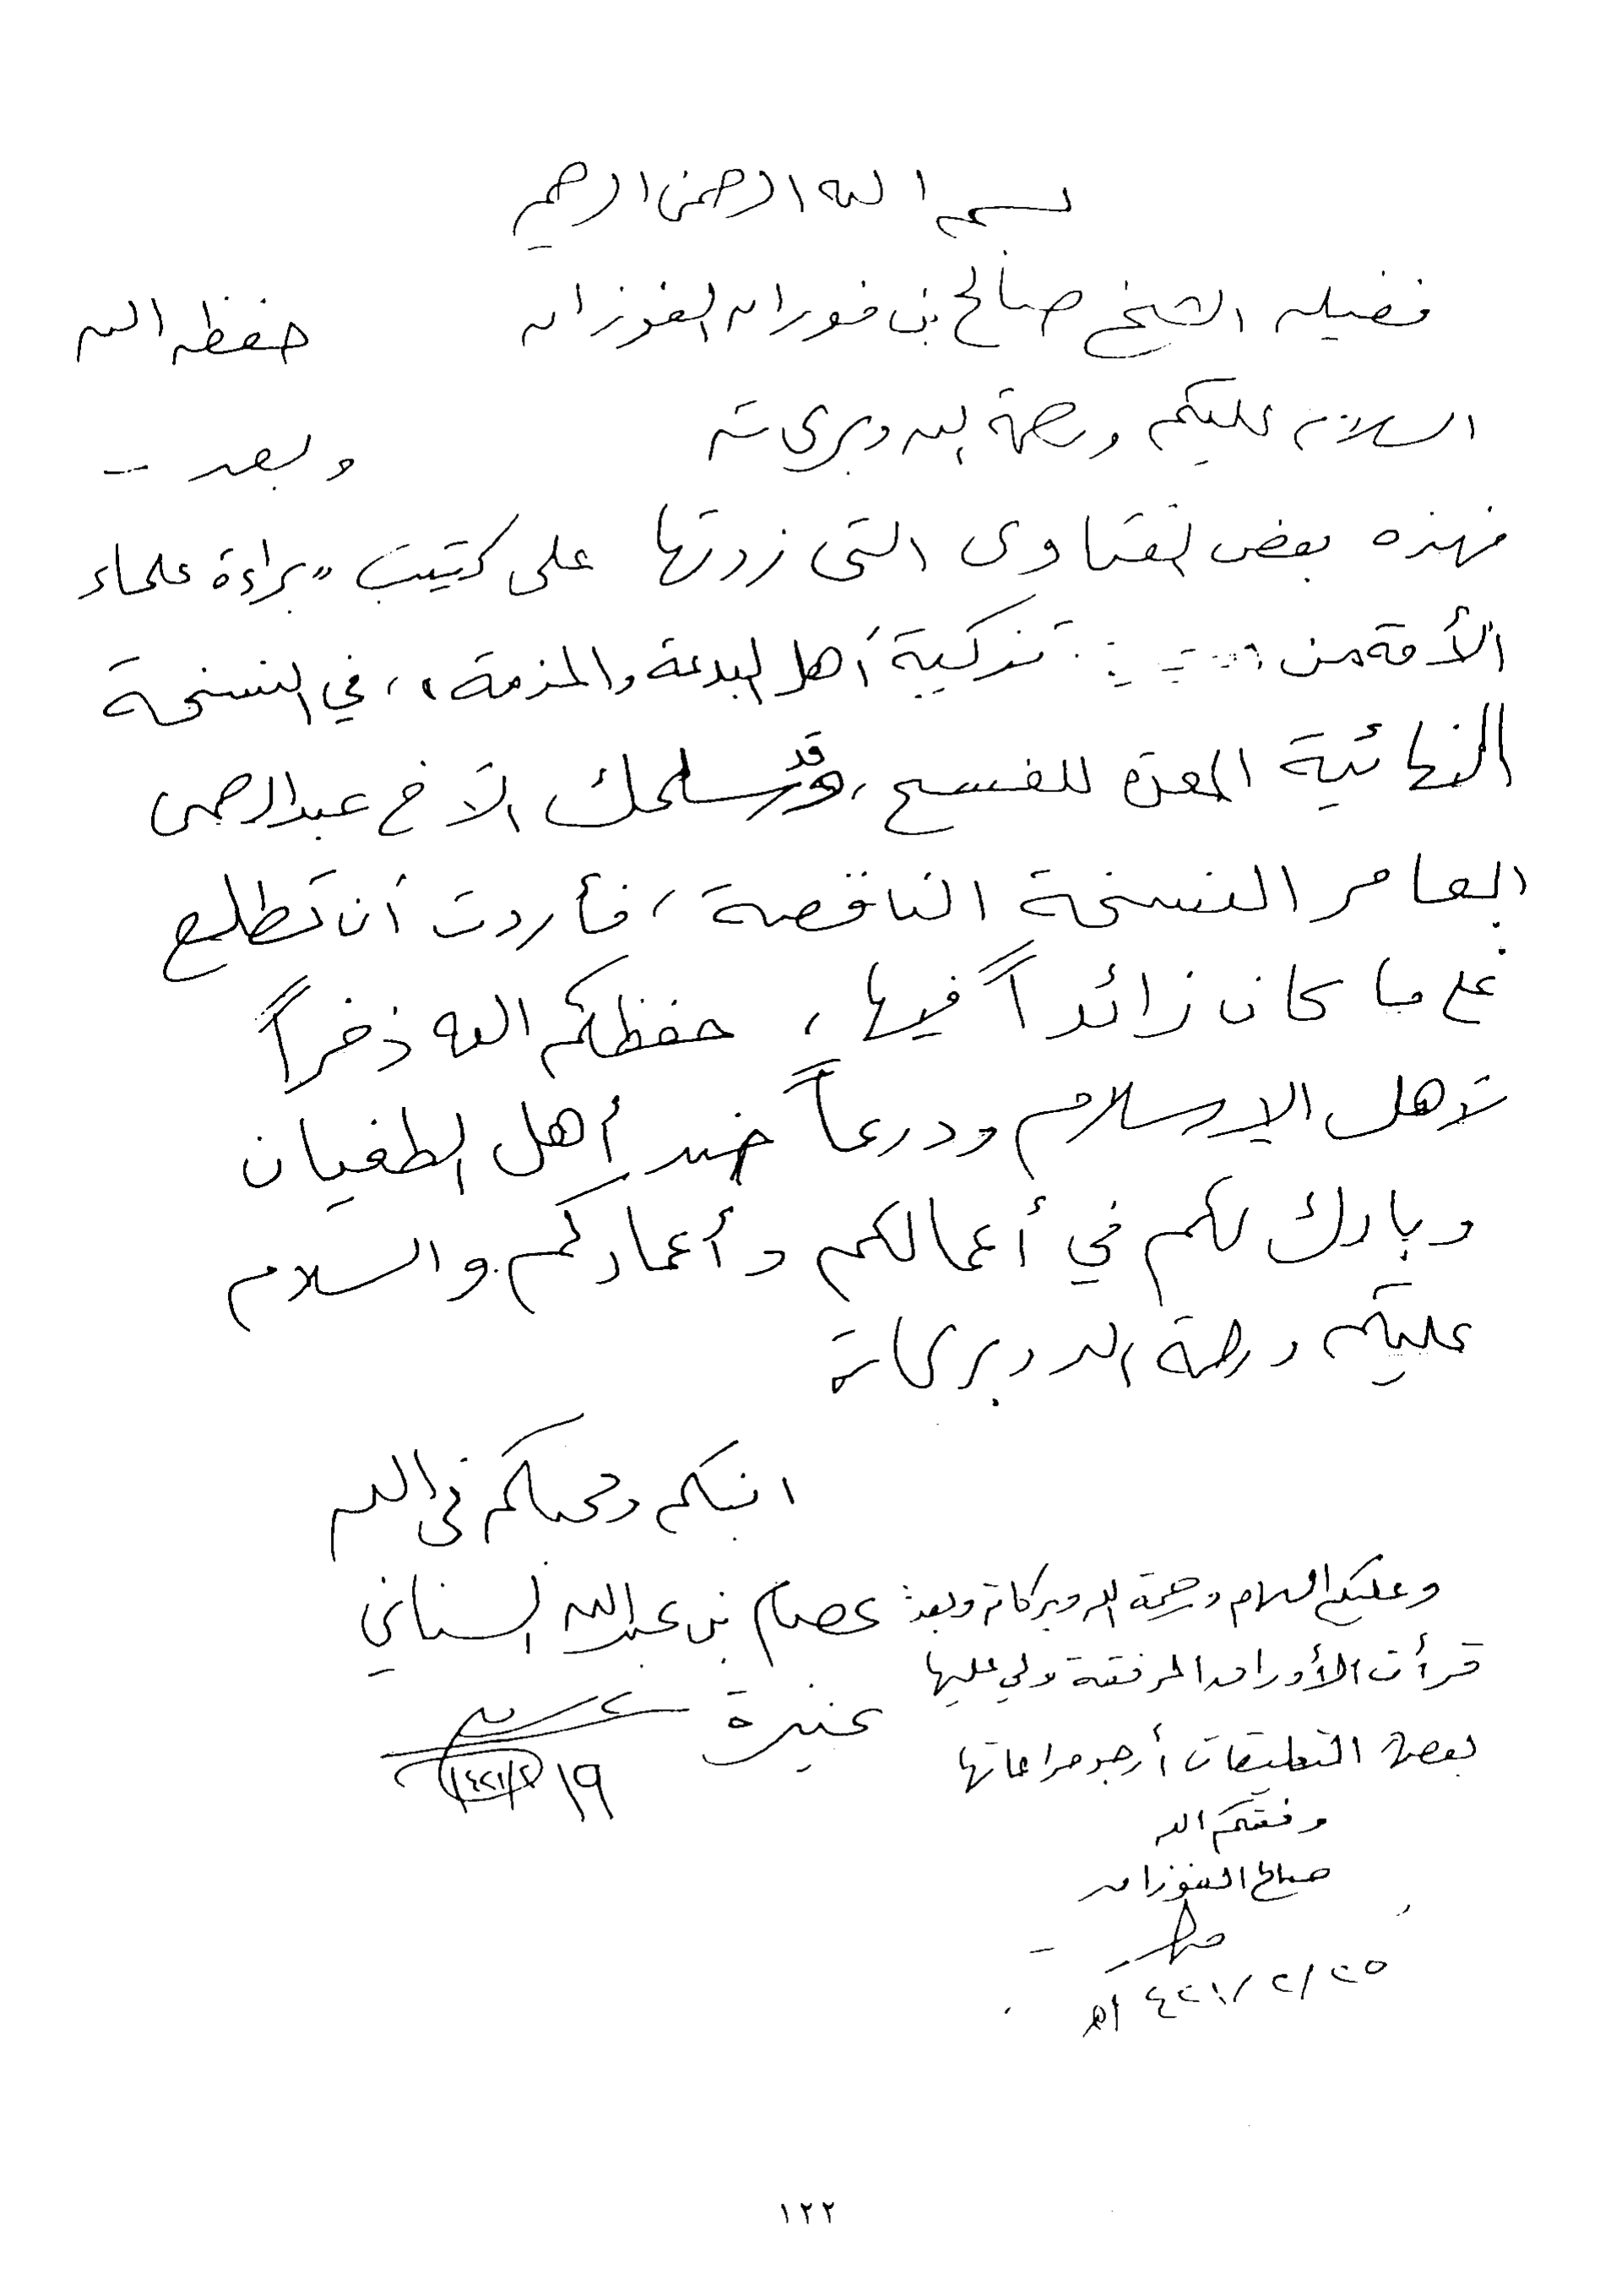 بسم الله الرحمن الرحيم
فضيلة الشيخ صالح بن فوزان الفوزان حفظه الله
السلام عليكم ورحمة الله وبركاته وبعد ..
فهذه بعض الفتاوى التي زدتها على كتيب " براءة علماء
الأمة من تزكية أهل البدعة والمذمة " ، في النسخة
النهائية المعدة للفسح ، وقد سلمك الأخ عبدالرحمن
العامر النسخة الناقصة ، فأردت أن تطلع
على ما كان زائداً فيها ، حفظكم الله ذخراً
لأهل الإسلام ودرعاً ضد أهل الطغيان
وبارك لكم في أعمالكم وأعماركم والسلام
عليكم ورحمة الله وبركاته
ابنكم ومحبكم في الله
عصام بن عبدالله السناني
عنيزة
١٩/٢/١٤٢١
وعليكم السلام ورحمة الله وبركاته وبعد:
قرأت الأوراق المرفقة ولي عليها
بعض التعليقات أرجو مراعاتها
وفقكم الله
صالح الفوزان
٢٥/٢/١٤٢١هـ
١٢٢